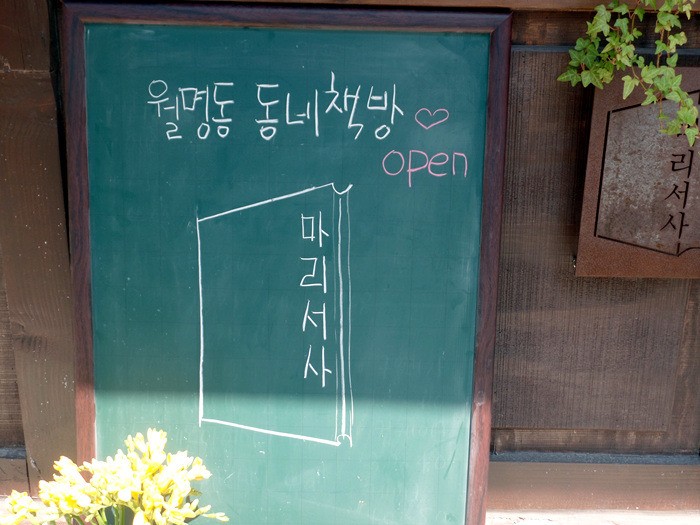 월명동 동네책방 ♡
open
마리서사
리서사